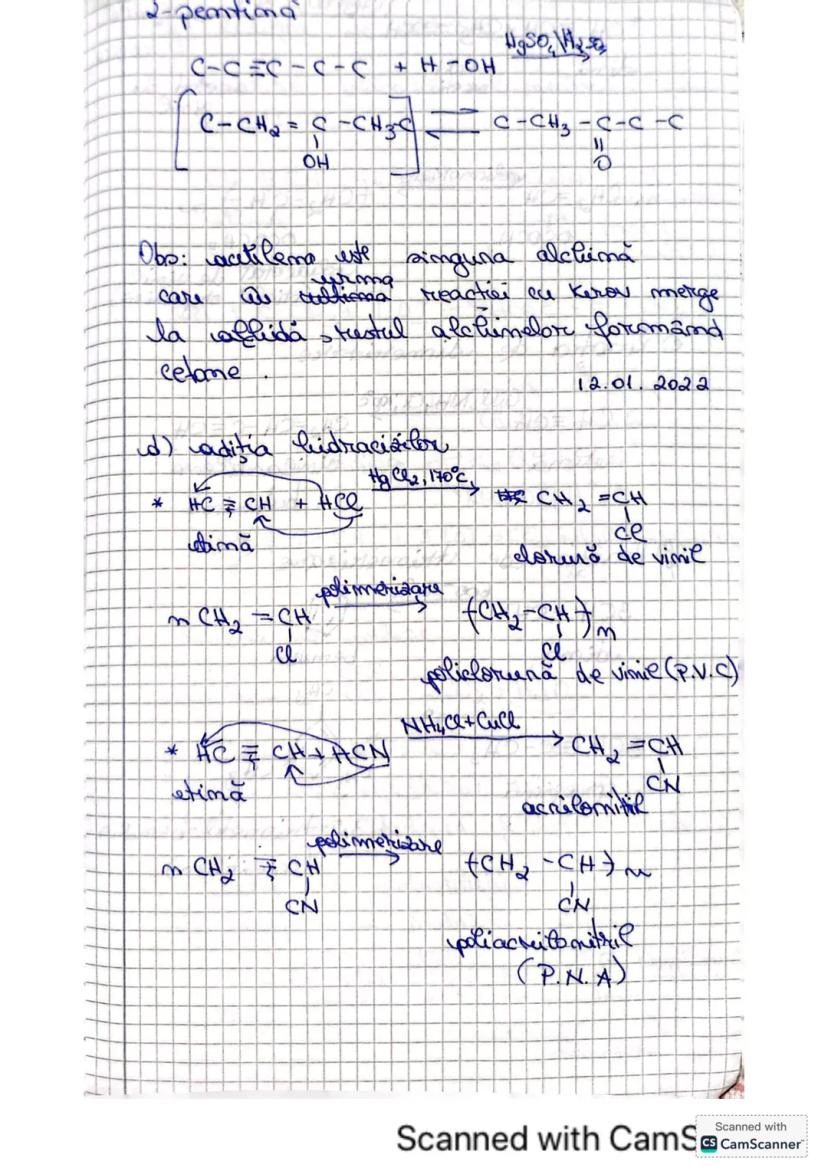 2-pentină
C-C≡C-C-C + H-OH HgSO₄/H₂SO₄
[C-CH₂=C-CH₃-C] ⇌ C-CH₃-C-C-C
OH O
Obs: acetilena este singura alchină
care în urma reacției cu Kucerov merge
la aldehidă, restul alchinelor formând
cetone.
12.01.2022
d) adiția hidracizilor
* HC≡CH + HCl HgCl₂, 170°C CH₂=CH
Cl
etină clorură de vinil
n CH₂=CH polimerizare (CH₂-CH)n
Cl Cl
policlorură de vinil (P.V.C)
* HC≡CH + HCN NH₄Cl+CuCl CH₂=CH
CN
etină acrilonitril
n CH₂=CH polimerizare (CH₂-CH)n
CN CN
poliacrilonitril
(P.N.A)
Scanned with CamS
Scanned with
CS CamScanner